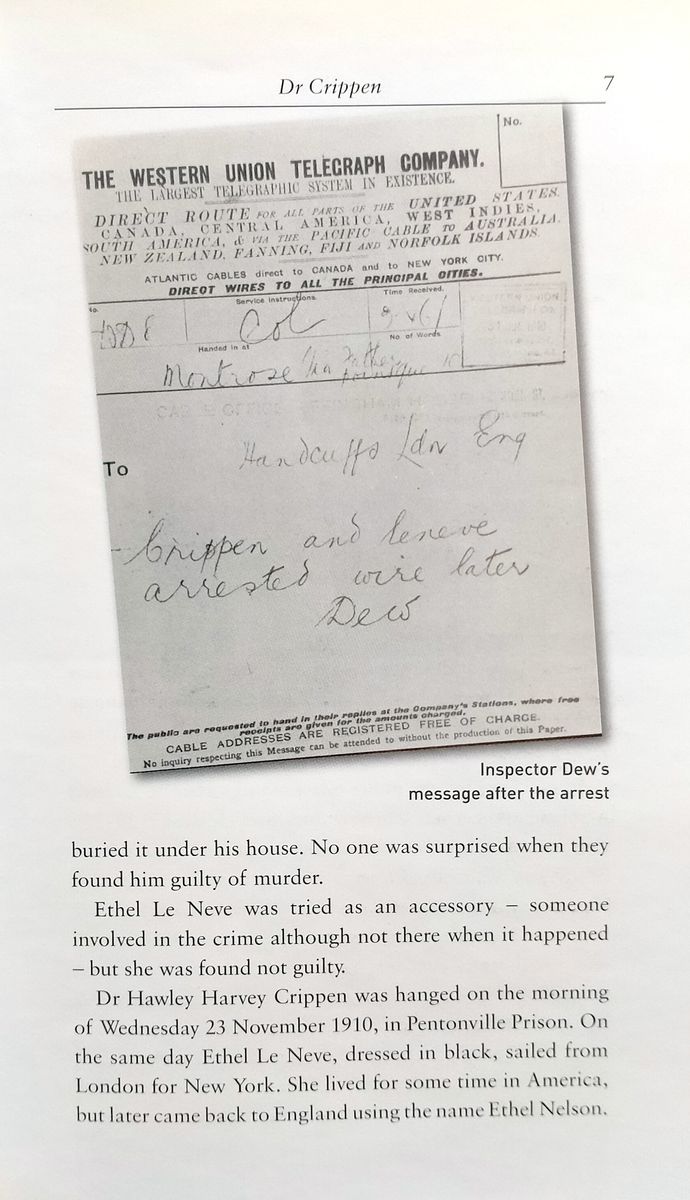 Dr Crippen
7
No.
THE WESTERN UNION TELEGRAPH COMPANY.
THE LARGEST TELEGRAPHIC SYSTEM IN EXISTENCE.
DIRECT ROUTE FOR ALL PARTS OF THE UNITED STATES.
CANADA, CENTRAL AMERICA, WEST INDIES,
SOUTH AMERICA, & VIA THE PACIFIC CABLE TO AUSTRALIA.
NEW ZEALAND, FANNING, FIJI AND NORFOLK ISLANDS.
ATLANTIC CABLES direct to CANADA and to NEW YORK CITY.
DIRECT WIRES TO ALL THE PRINCIPAL CITIES.
No.
Service Instructions.
Time Received.
Col
Handed in at
No. of Words.
Montrose Via Father
To
Handcuffs Ldn Eng
Crippen and leneve
arrested wire later
Dew
The public are requested to hand in their replies at the Company's Stations, where free
receipts are given for the amounts charged.
CABLE ADDRESSES ARE REGISTERED FREE OF CHARGE.
No inquiry respecting this Message can be attended to without the production of this Paper.
Inspector Dew's
message after the arrest
buried it under his house. No one was surprised when they
found him guilty of murder.
Ethel Le Neve was tried as an accessory – someone
involved in the crime although not there when it happened
– but she was found not guilty.
Dr Hawley Harvey Crippen was hanged on the morning
of Wednesday 23 November 1910, in Pentonville Prison. On
the same day Ethel Le Neve, dressed in black, sailed from
London for New York. She lived for some time in America,
but later came back to England using the name Ethel Nelson.